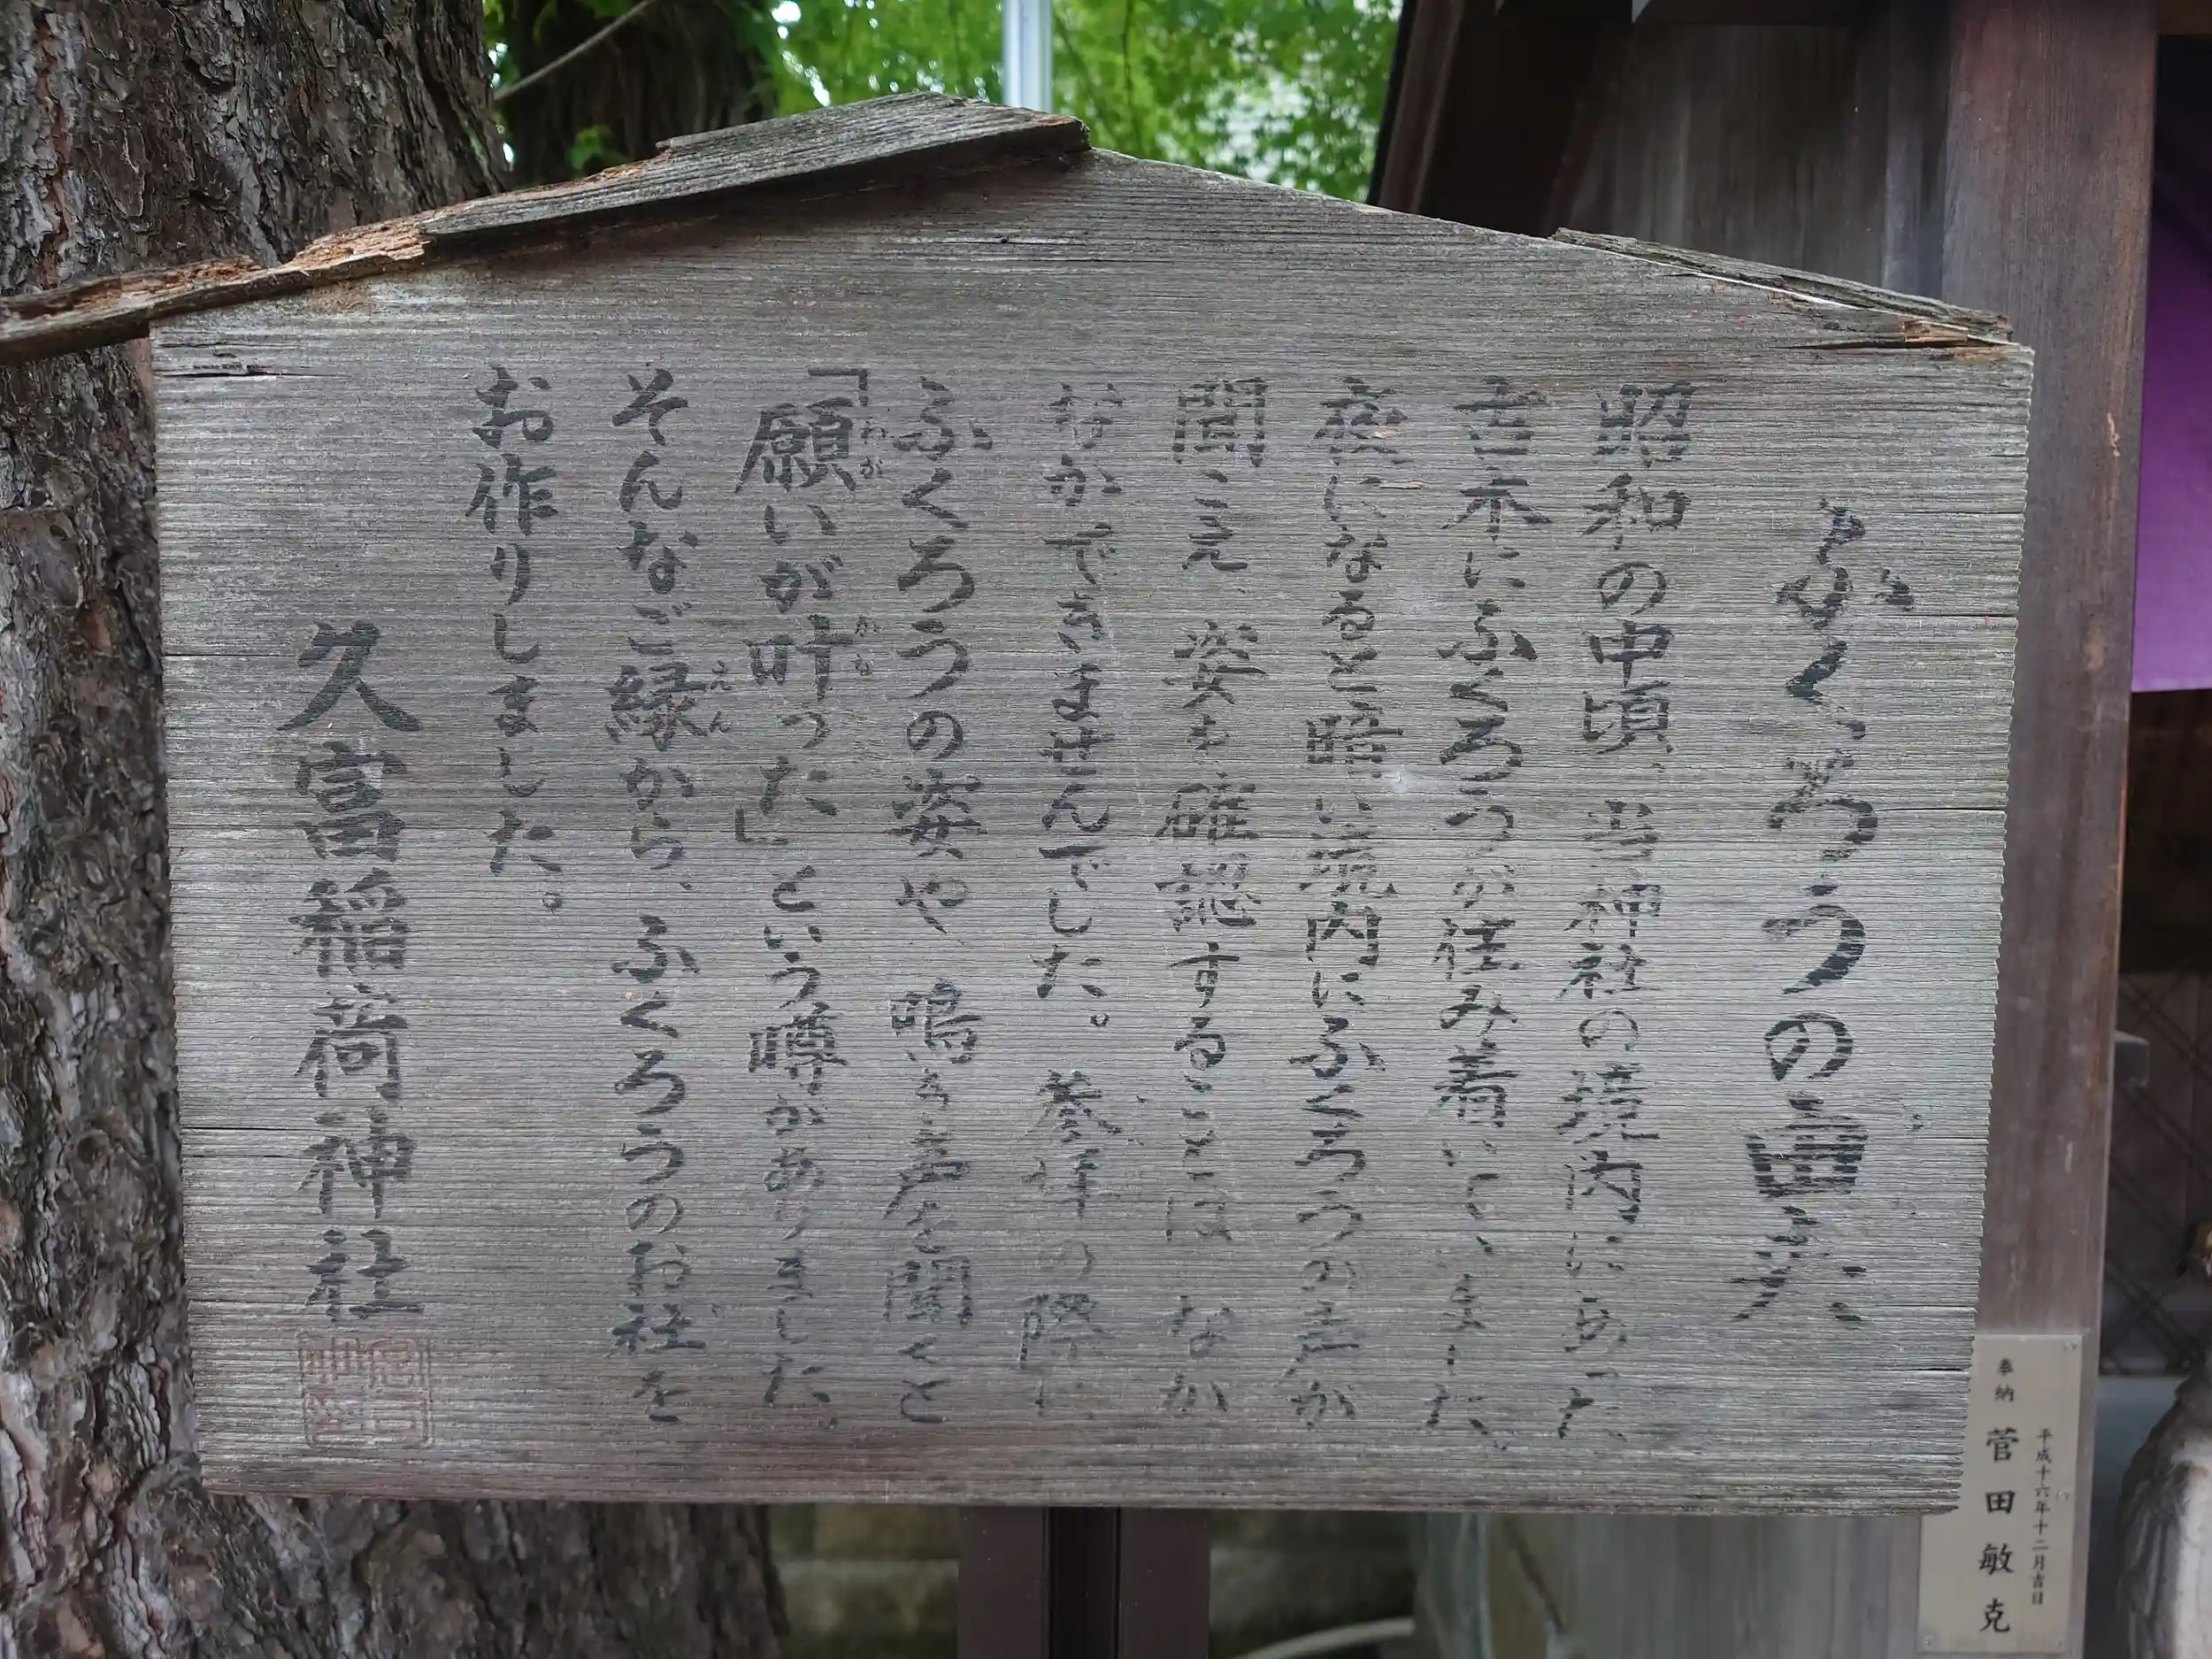 ふくろうの由来
昭和の中頃、当神社の境内にあった
古木にふくろうが住み着いていました。
夜になると暗い境内にふくろうの声が
聞こえ、姿を確認することは なか
なかできませんでした。参拝の際に
ふくろうの姿や 鳴き声を聞くと
「願いが叶った」という噂がありました。
わが
かな
そんなご縁から、ふくろうのお社を
えん
お作りしました。
久富稲荷神社
奉納 菅田敏克
平成十六年十二月吉日